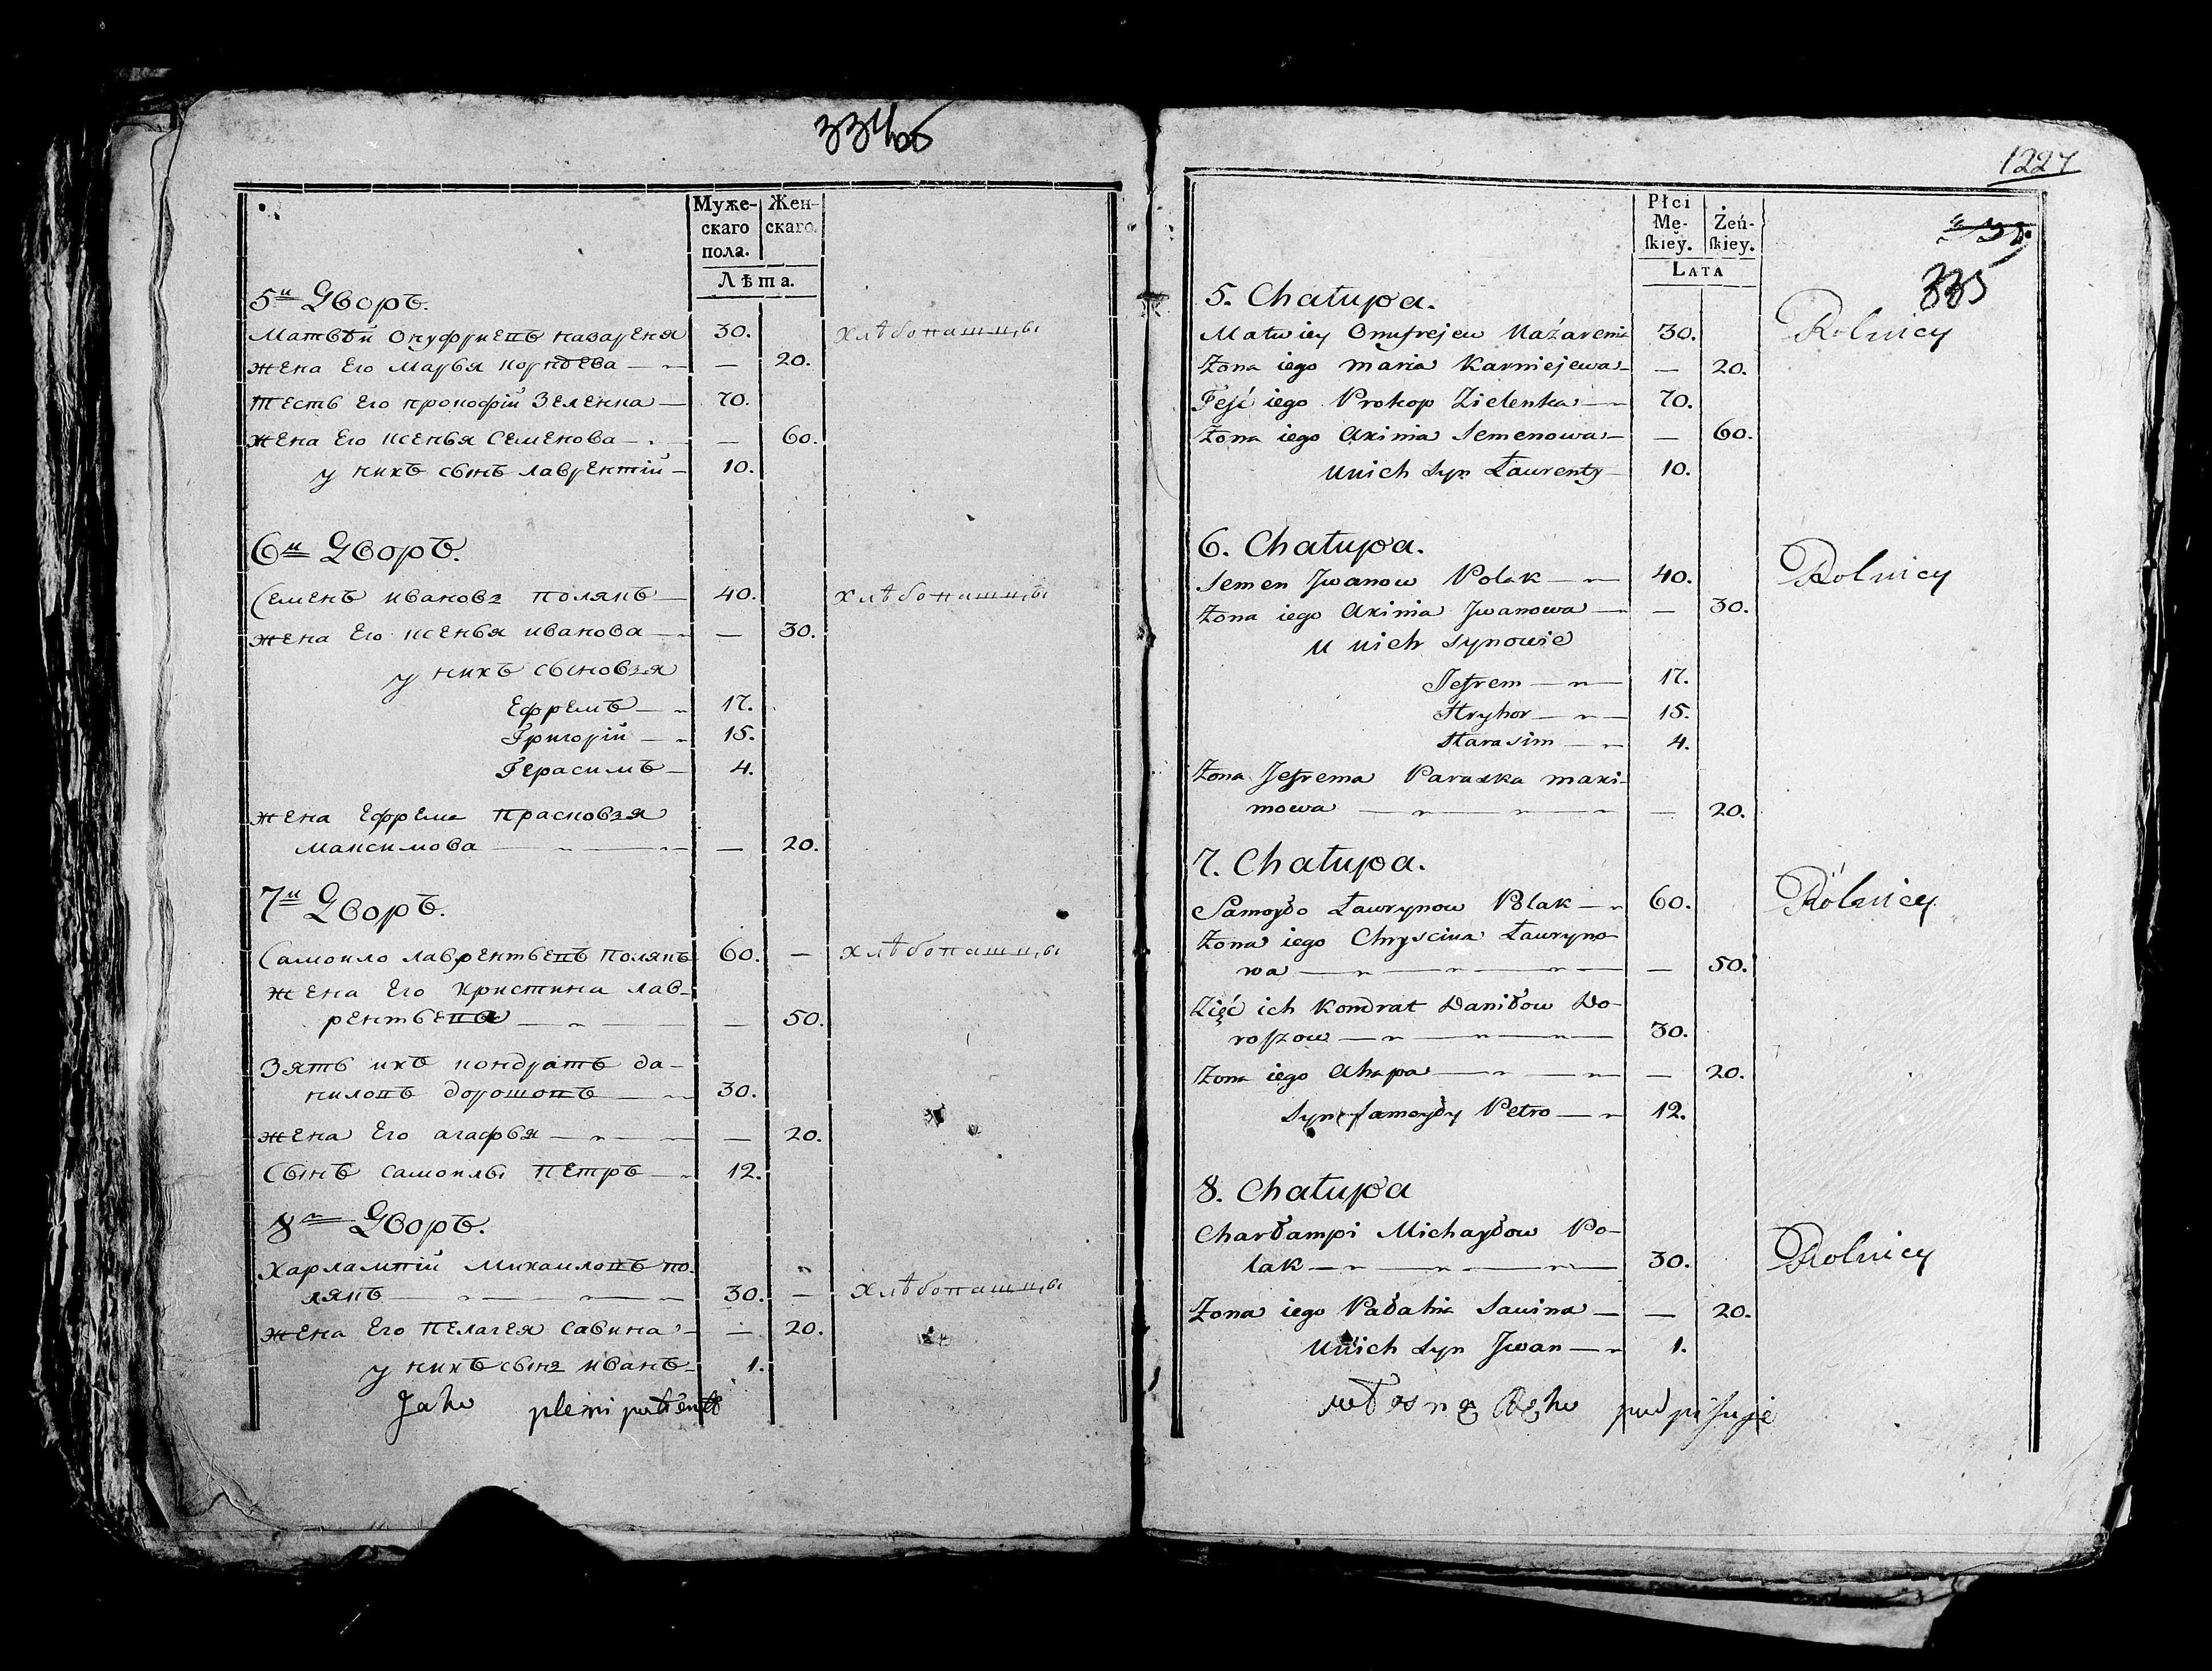 334 об
Муже-
скаго
пола.
Жен-
скаго.
Лѣта.
5й Дворъ.
Матвѣй Онуфриевъ назареня 30. хлѣбопашцы
жена Его марья корнѣева — 20.
тесть Его прокофій Зеленка — 70.
жена Его ксенья Семенова — — 60.
у нихъ сынъ лаврентій — 10.
6й Дворъ.
Семенъ иванов полякъ — 40. хлѣбопашцы
жена Его ксенья иванова — — 30.
у нихъ сыновья
Ефремъ — 17.
Григорій — 15.
Герасимъ — 4.
жена Ефрема прасковья
максимова — — 20.
7й Дворъ.
Самоило лаврентьевъ полякъ 60. — хлѣбопашцы
жена Его христина лав-
рентьева — — 50.
Зять ихъ кондратъ да-
ниловъ дорошовъ — 30.
жена Его агафья — — 20.
Сынъ самоилы петръ — 12.
8й Дворъ.
Харлампій михаиловъ по-
лякъ — 30. — хлѣбопашцы
жена Его пелагея савина — — 20.
у нихъ сынъ иванъ — 1.
Jako plenipotent
1227
335
Płci
Mę-
skiey.
Żeń-
skiey.
LATA
5. Chałupa.
Matwiey Onufrejew Nazarenia 30. Rolnicy
Żona iego Maria Karniejewa — — 20.
Teść iego Prokop Zielenka — 70.
Żona iego Axinia Semenowa — — 60.
u nich syn Ławrenty 10.
6. Chałupa.
Semen Jwanow Polak — 40. Rolnicy
Żona iego Axinia Jwanowa — — 30.
u nich synowie
Jefrem — 17.
Hryhor — 15.
Harasim — 4.
Żona Jefrema Paraska Maxi-
mowa — — 20.
7. Chałupa.
Samoyło Ławrynow Polak — 60. Rolnicy
Żona iego Chryscina Ławryno-
wa — — 50.
Zięć ich Kondrat Daniłow Do-
roszow — 30.
Żona iego Ahapa — — 20.
Syn Samoyły Petro — 12.
8. Chałupa
Charłampi Michayłow Po-
lak — 30. Rolnicy
Żona iego Pałahia Sawina — — 20.
u nich syn Jwan — 1.
własną Ręko podpisuje